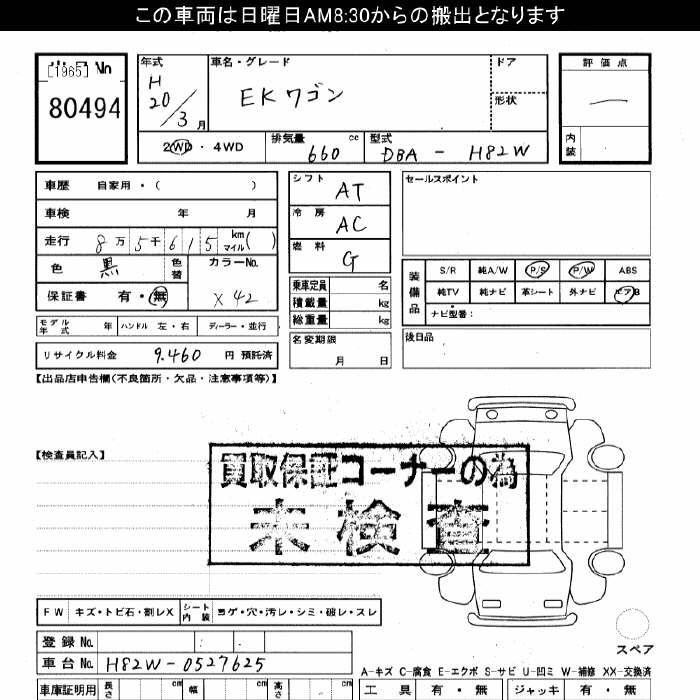 この車両は日曜日AM8:30からの搬出となります
[1965] Vn
80494
年式
H
20/3月
車名・グレード
EKワゴン
ドア
形状
評価点
内装
2WD・4WD
排気量 cc
660
型式
DBA - H82W
車歴 自家用・( )
車検 年 月
走行 8万5千615 km マイル( )
色 黒 色替
カラーNo.
X42
保証書 有・無
モデル年式 年 ハンドル 左・右 ディーラー・並行
リサイクル料金 9.460 円 預託済
シフト AT
冷房 AC
燃料 G
乗車定員 名
積載量 kg
総重量 kg
名変期限 月 日
セールスポイント
装備品
S/R 純A/W P/S P/W ABS
純TV 純ナビ 革シート 外ナビ エアB
ナビ型番:
後日品
【出品店申告欄(不良箇所・欠品・注意事項等)】
【検査員記入】
買取保証コーナーの為
未検査
FW キズ・トビ石・割レX シート内装 ヨゲ・穴・汚レ・シミ・破レ・スレ
登録No.
車台No. H82W-0527625
スペア
A-キズ C-腐食 E-エクボ S-サビ U-凹ミ W-補修 XX-交換済
車庫証明用 長さ cm 幅 cm 高さ cm
工具 有・無 ジャッキ 有・無